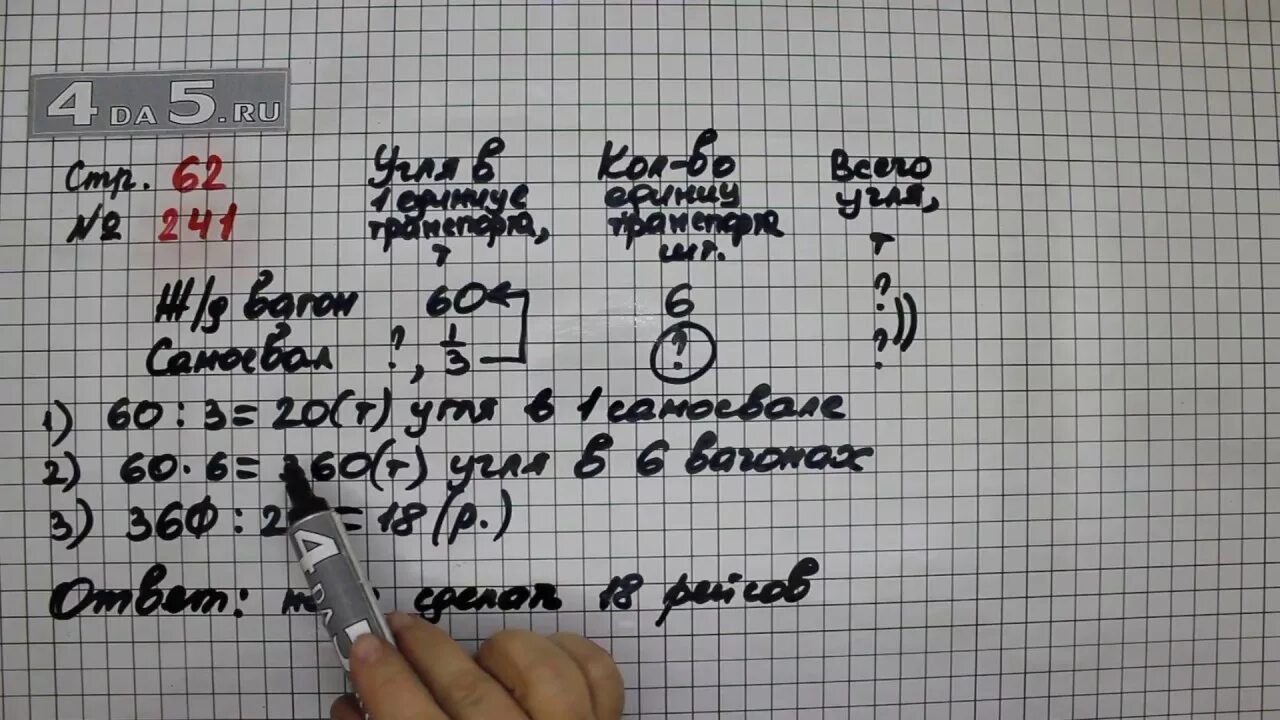 4DA5.RU
Стр. 62
№ 241
Угля в 1 единице транспорта, т
Кол-во единиц транспорта шт.
Всего угля, т
Ж/д вагон 60 6 ?
Самосвал ?, 1/3 ? ?
1) 60 : 3 = 20(т) угля в 1 самосвале
2) 60 · 6 = 360(т) угля в 6 вагонах
3) 360 : 2 = 18 (р.)
Ответ: сделать 18 рейсов
4DA5